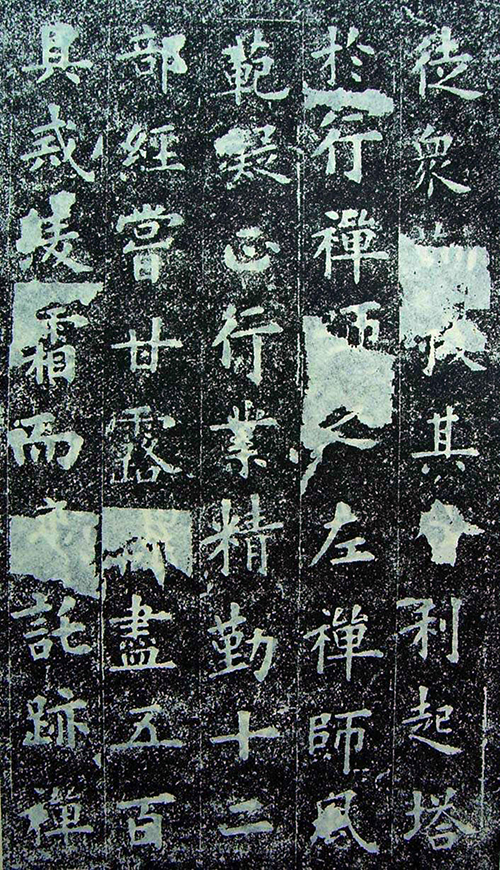 徒眾收其利起塔
於行禪師之左禪師風
範凝正行業精勤十二
部經嘗甘露盡五百
具戒凌霜而託跡禪